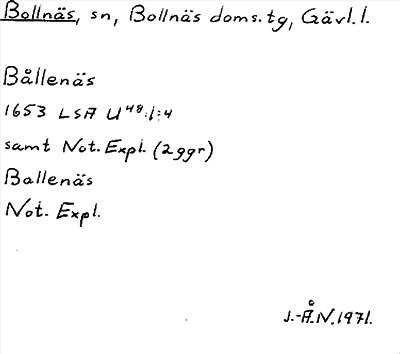 Bollnäs, sn, Bollnäs doms.tg, Gävl.l.
Bållenäs
1653 LSA U48:1:4
samt Not. Expl. (2 ggr)
Ballenäs
Not. Expl.
J.-Å.N. 1971.